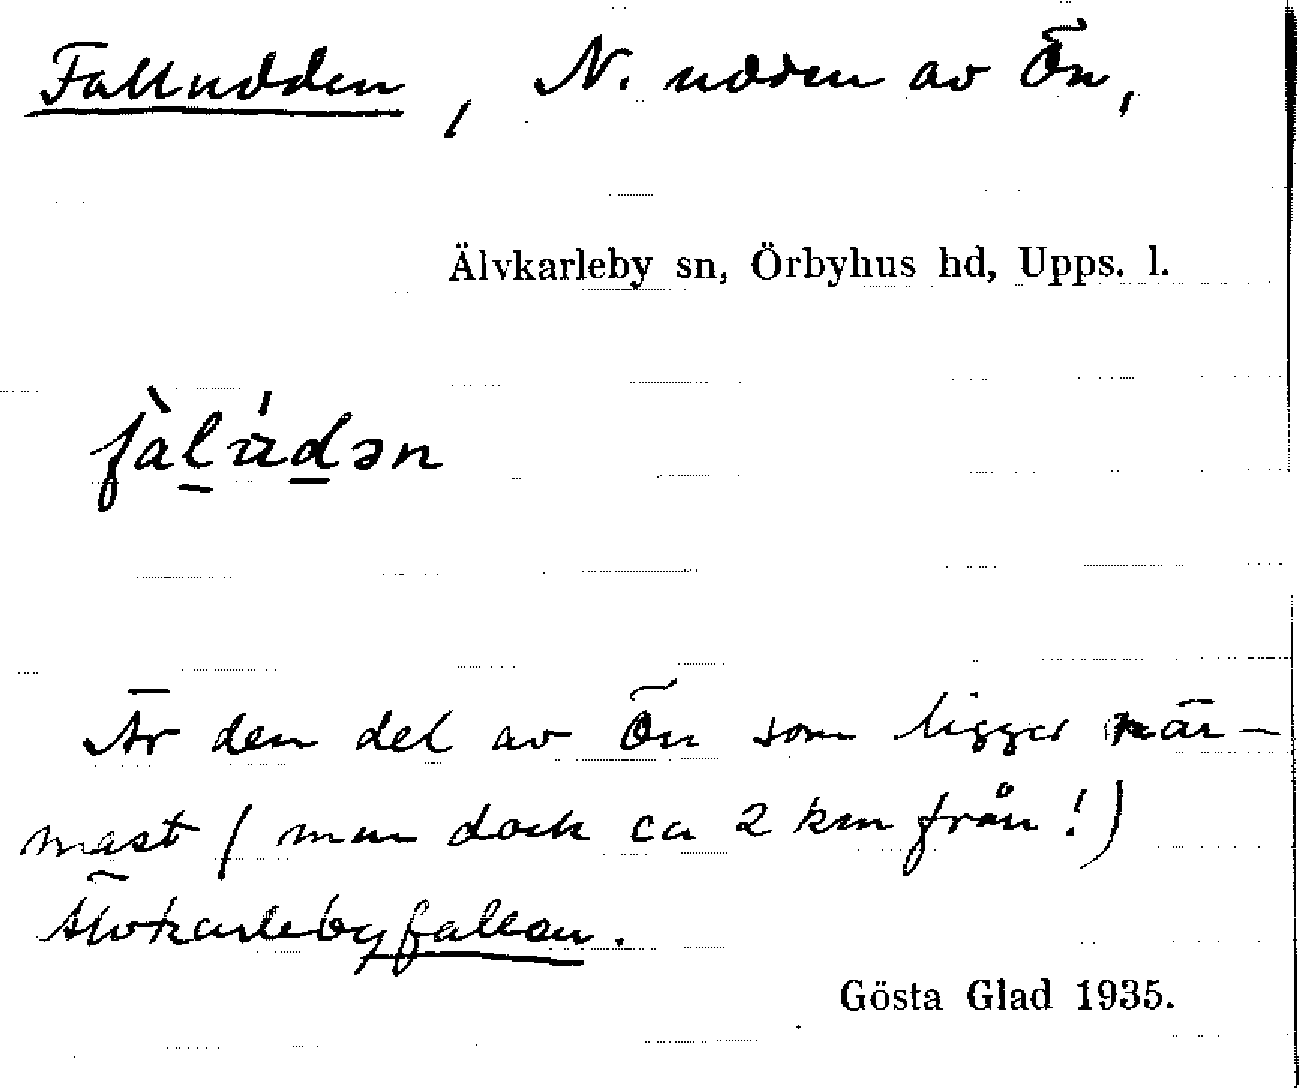 Falludden, N. udden av Ön,
Älvkarleby sn, Örbyhus hd, Upps. l.
Är den del av Ön som ligger när-
mast (men dock ca 2 km från!)
Älvkarlebyfallen.
Gösta Glad 1935.